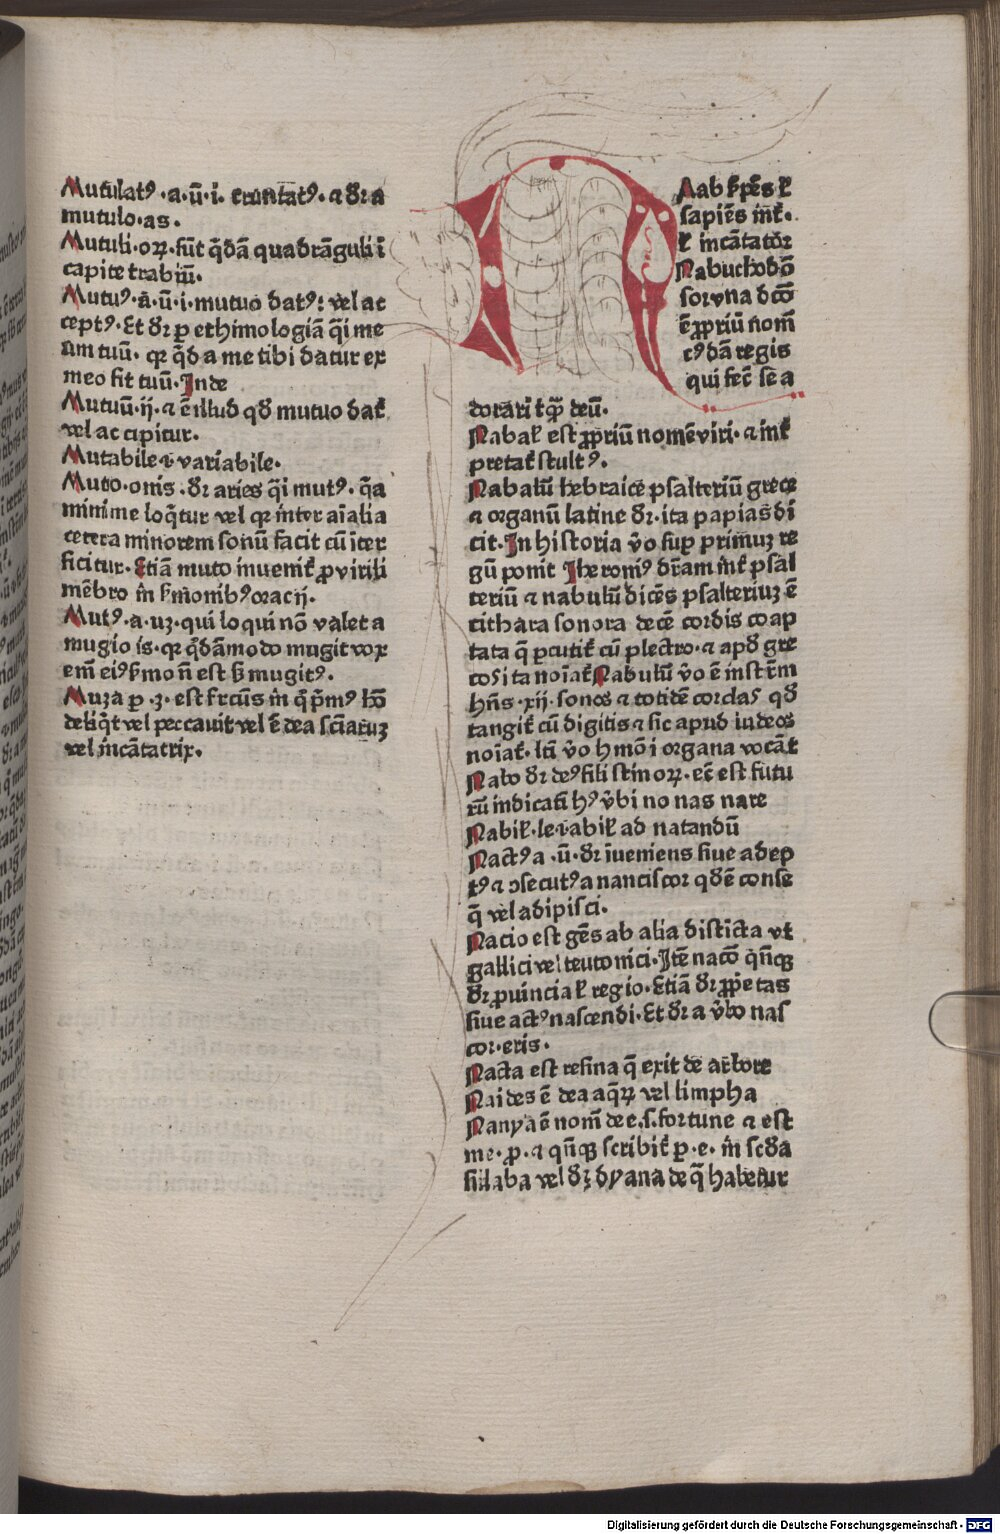 Mutilatꝰ .a.ū.i. truncatꝰ. ⁊ dr̄ a
mutulo.as.
Mutuli.oꝝ. sūt q̄dā quadrāguli ī
capite trabiū.
Mutuꝰ.a.ū.i. mutuo datꝰ: vel ac
ceptꝰ. Et dr̄ ꝑ ethimologiā q̄i me
um tuū. qꝛ q̄d a me tibi datur ex
meo fit tuū. Inde
Mutuū.ij. ⁊ ē illud qd̄ mutuo dat̄
vel accipitur.
Mutabile .i. variabile.
Muto.onis. dr̄ aries q̄i mutꝰ. q̄a
minime loq̄tur vel qꝛ inter aīalia
cetera minorem sonū facit cū īter
ficitur. Etiā muto inuenit̄ ꝓ virili
mēbro in s̄monibꝰ oracij.
Mutꝰ.a.uꝫ. qui loqui nō valet a
mugio is. qꝛ q̄dāmodo mugit vox
em̄ eiꝰ s̄mo n̄ est sꝫ mugitꝰ.
Muza ꝑ .z. est
deliq̄t vel peccauit vel ē dea sciaruꝫ
vel incātatrix.
Naab
sapiēs int̄.
ł incātator
Nabuchodo
sor vna dcō
ē ꝓpriū nom̄
cꝰdā regis
qui fec̄ se a
dorari tq̄ deū.
Nabal est ꝓpriū nomē viri. ⁊ int̄
pretat̄ stultꝰ.
Nabalū hebraice psalteriū grece
⁊ organū latine dr̄. ita papias di
cit. In historia v̄o suꝑ primuꝫ re
gū ponit Iheronimꝰ dr̄am int̄ psal
teriū ⁊ nabulū dicēs psalteriuꝫ ē
cithara sonora decē cordis coap
tata q̄ ꝑcutit̄ cū plectro. ⁊ apd̄ gre
cos ita noīat̄. Nabulū v̄o ē instr̄m
hn̄s .xij. sonos ⁊ totidē cordas qd̄
tangit̄ cū digitis ⁊ sic apud iudeos
noīat̄. ltī v̄o hmōi organa vocāt
Nabo dr̄ deꝰ filistinoꝝ. ec̄ est futu
rū indicati hꝰ v̄bi no nas nare
Nabil.le .i. abil ad natandū
Nactꝰ a.ū. dr̄ īueniens siue adep
tꝰ ⁊ ꝯsecutꝰ a nanciscor qd̄ ē conse
q̄ vel adipisci.
Nacio est gēs ab alia disticta vt
gallici vel teutonici. Itē nacō qn̄qꝫ
dr̄ ꝓuincia ł regio. Etiā dr̄ ꝓpetas
siue actꝰ nascendi. Et dr̄ a v̄bo nas
cor.eris.
Nacta est resina q̄ exit de arbore
Naides ē dea aq̄ꝝ vel limpha
Nanya ē nom̄ dee.s. fortune ⁊ est
me. ꝓ. ⁊ qn̄qꝫ scribit̄ ꝑ .e. in scd̄a
sillaba vel dr̄ dyana de q̄ habetur
Digitalisierung gefördert durch die Deutsche Forschungsgemeinschaft - DFG